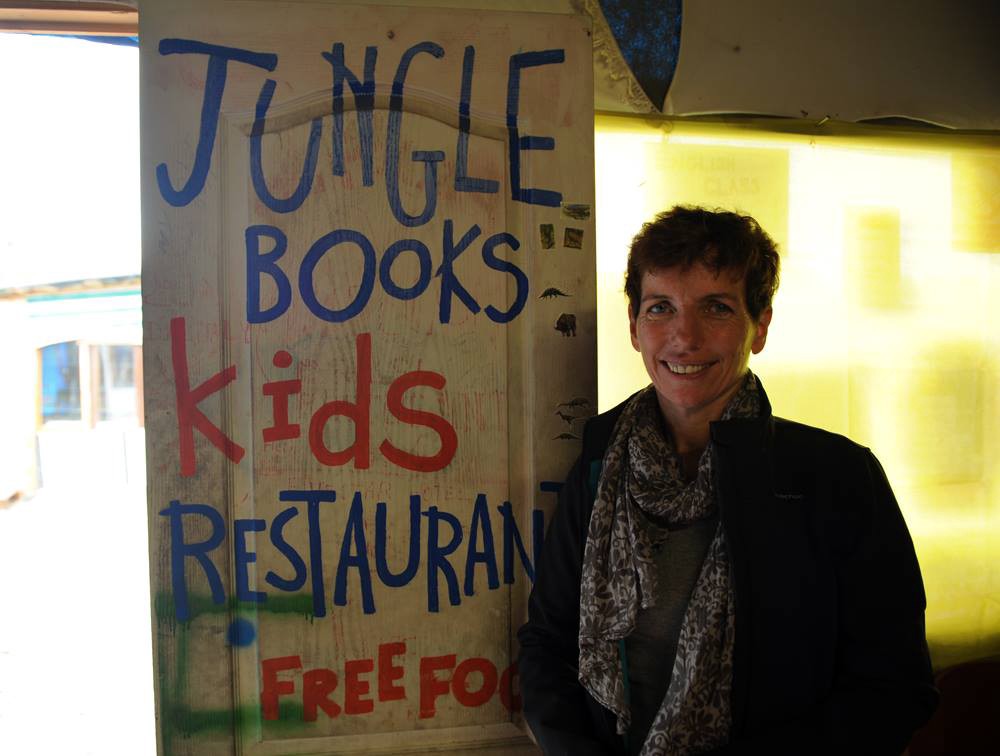 JUNGLE
BOOKS
kids
RESTAURANT
FREE FOO
ENGLISH
CLASS